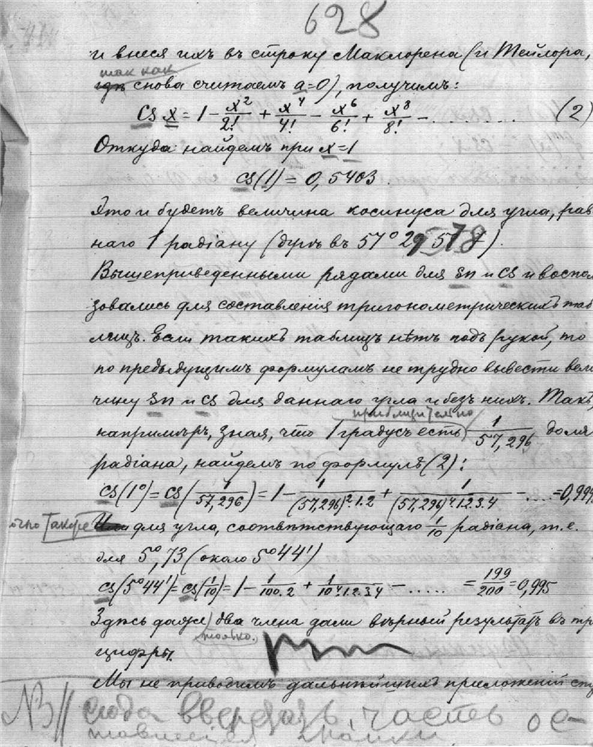 628
и внеся ихъ въ строку Маклорена (и Тейлора,
такъ какъ
снова считаемъ a=0), получимъ:
Cs x = 1 - x²/2! + x⁴/4! - x⁶/6! + x⁸/8! - ... (2)
Откуда найдемъ при x=1
cs(1) = 0,5403.
Это и будетъ величина косинуса для угла, рав
наго 1 радіану (дугѣ въ 57°
Вышеприведенными рядами для sn и cs и воспол
зовались для составленія тригонометрическихъ таб
лицъ. Если такихъ таблицъ нѣтъ подъ рукой, то
по предыдущимъ формуламъ не трудно вывести вели
чину sn и cs для даннаго угла и безъ нихъ. Такъ,
приблизительно
напримѣръ, зная, что 1 градусъ есть 1/57,296 доля
радіана, найдемъ по формулѣ (2):
cs(1°) = cs(1/57,296) = 1 - 1/(57,296)².1.2 + 1/(57,296)⁴.1.2.3.4 - .... = 0,999
для угла, соотвѣтствующаго 1/10 радіана, т.е.
для 5°,73 (около 5°44')
cs(5°44') = cs(1/10) = 1 - 1/100.2 + 1/10⁴.1.2.3.4 - ...... = 199/200 = 0,995
Здѣсь даже два члена дали вѣрный результатъ въ три
только.
цифры.
Мы не приводимъ дальнѣйшихъ приложеній
NB // сюда часть ос-